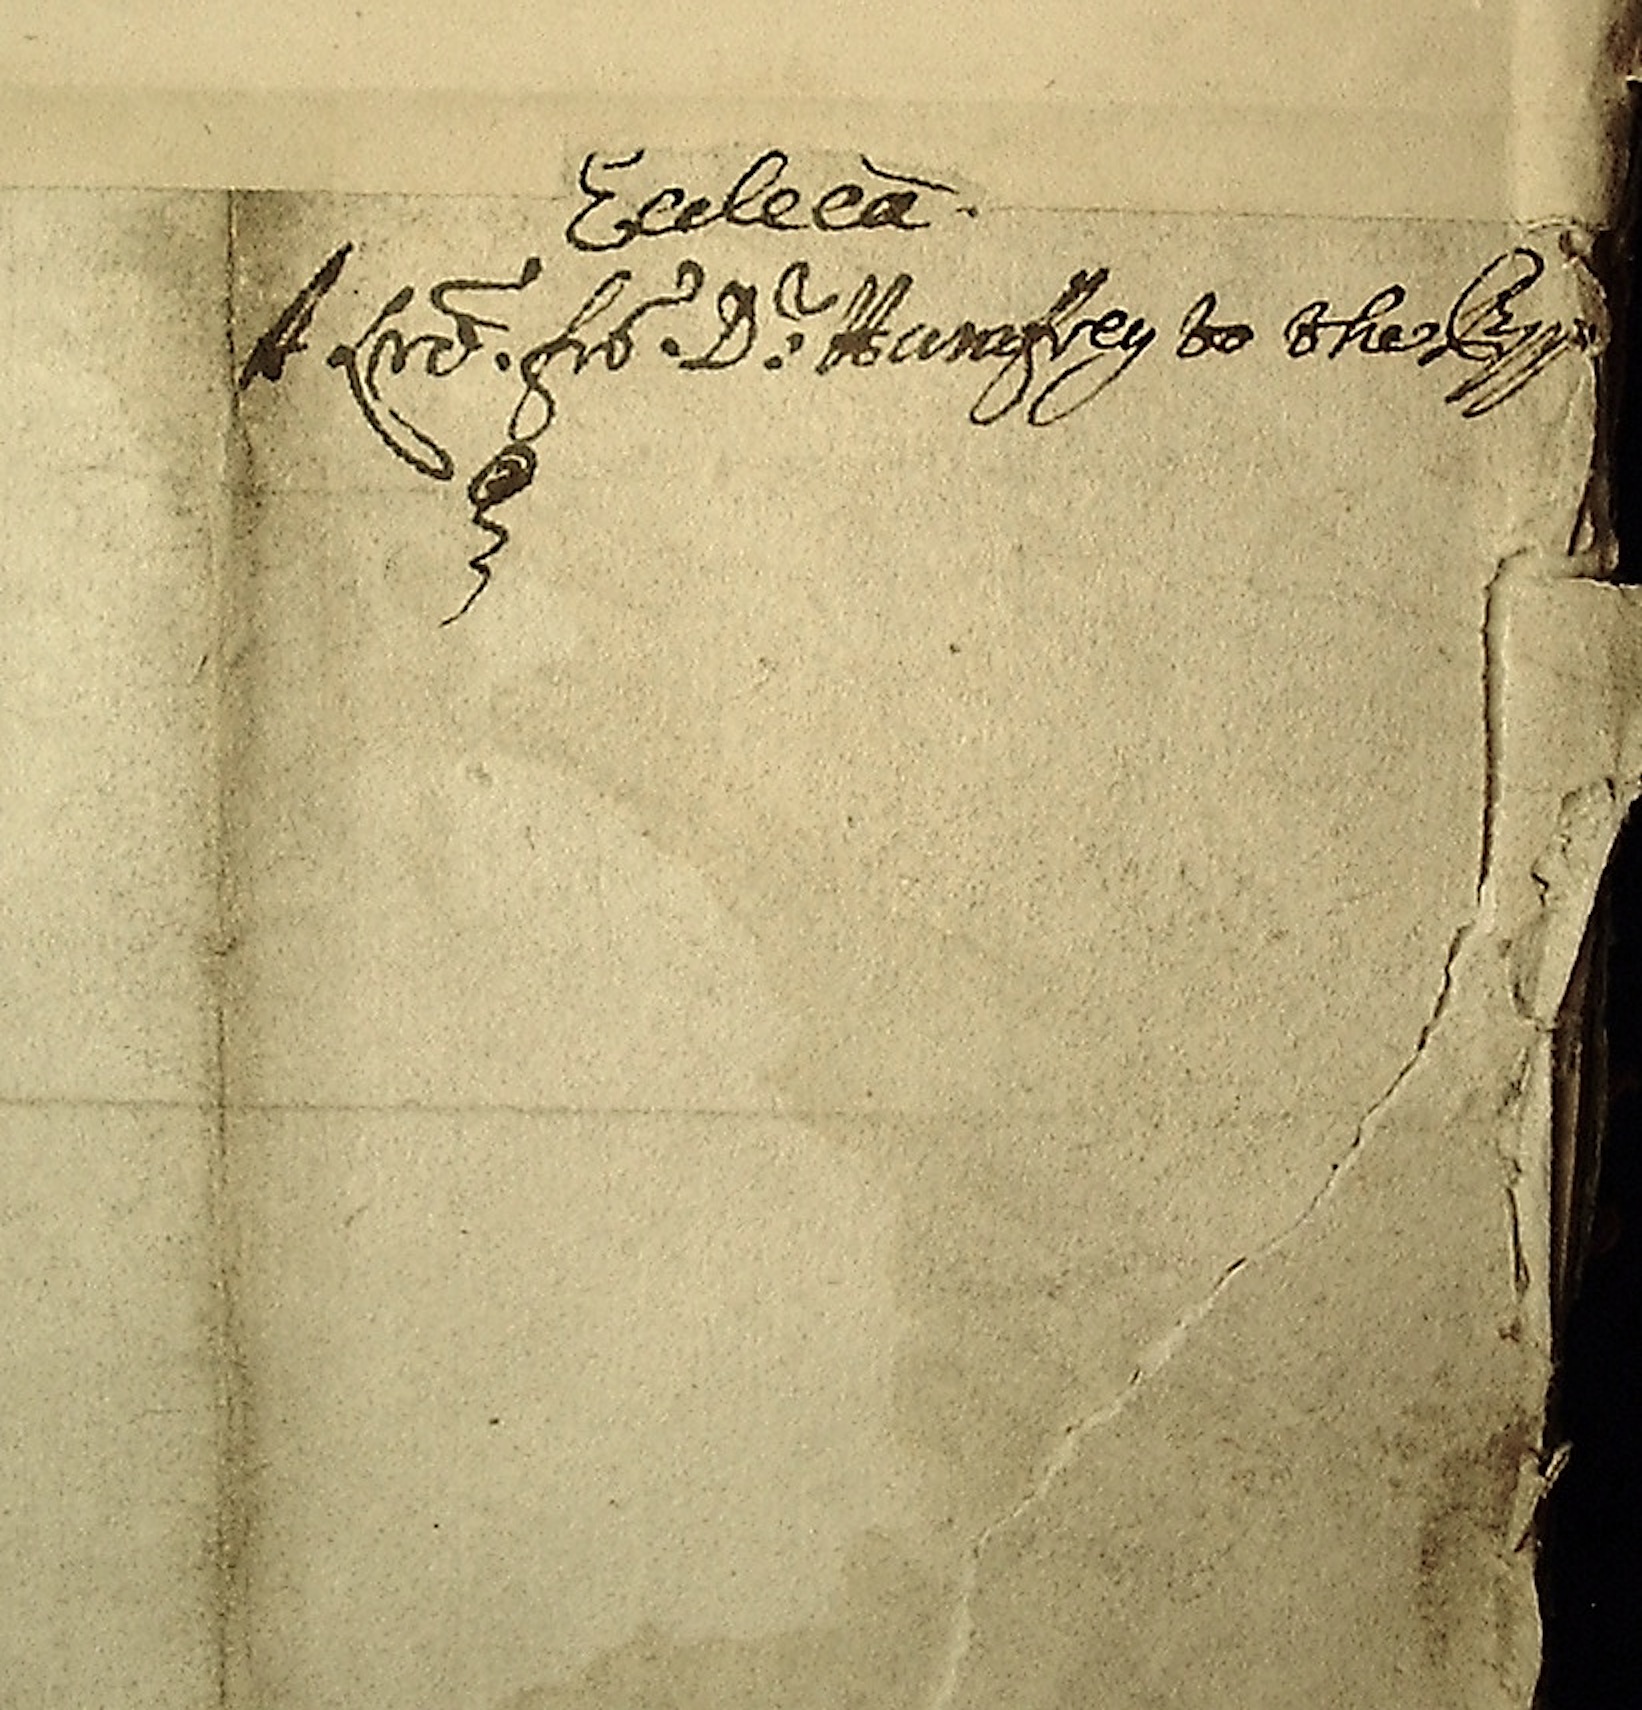 Eccleca.
A Lre. fro. Dr. Humfrey to the Bpps